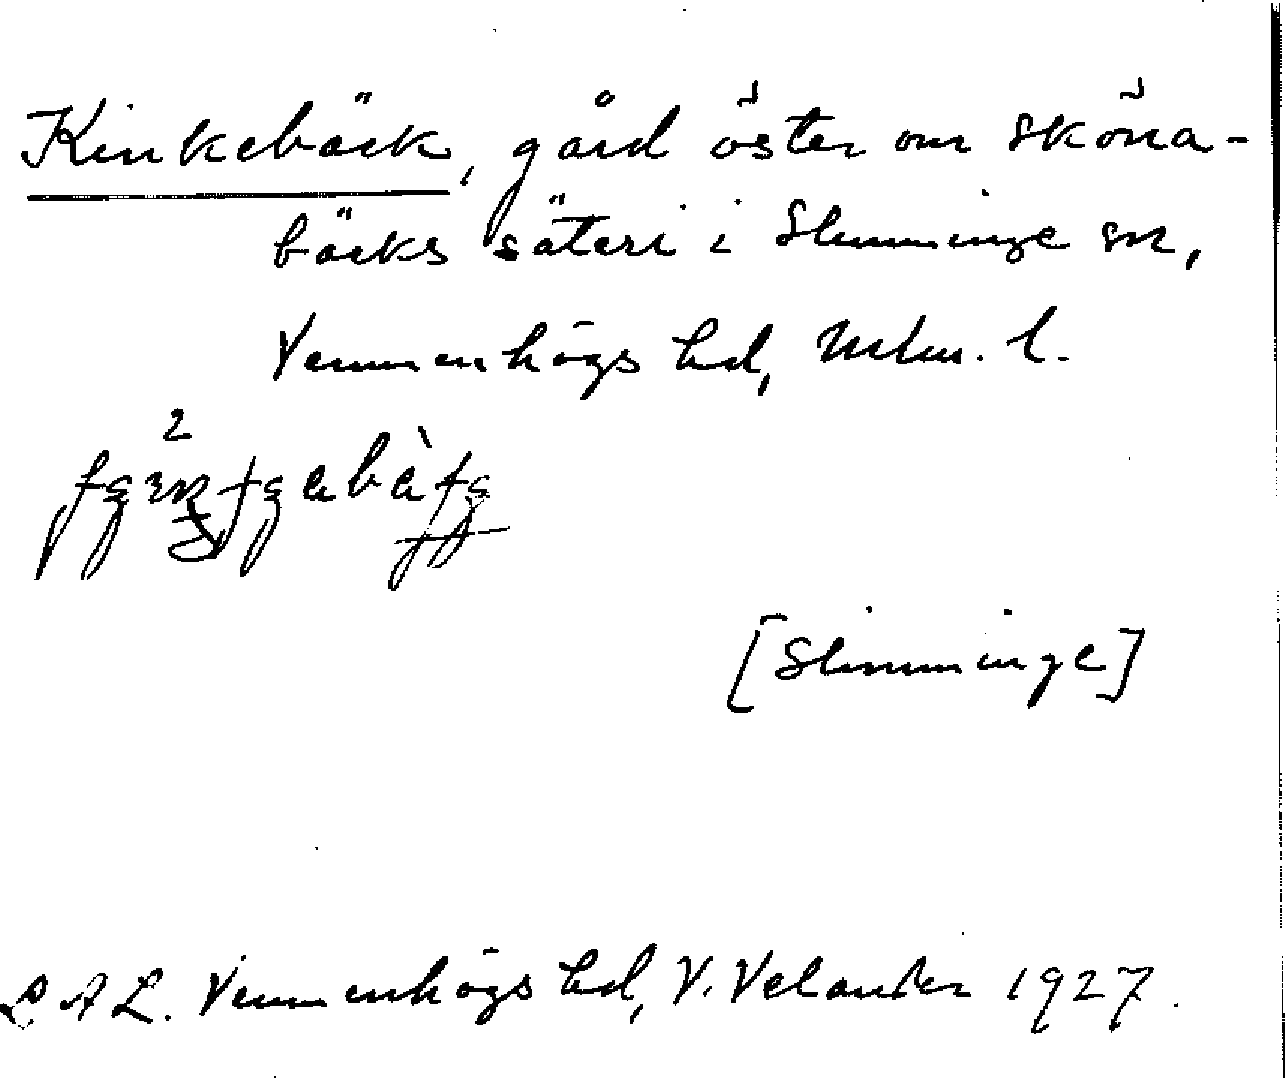 Kinkebäck, gård öster om Sköna-
bäcks säteri i Slimminge sn,
Vemmenhögs hd, Mlm. l.
[Slimminge]
L A L. Vemmenhögs hd, V. Velander 1927.